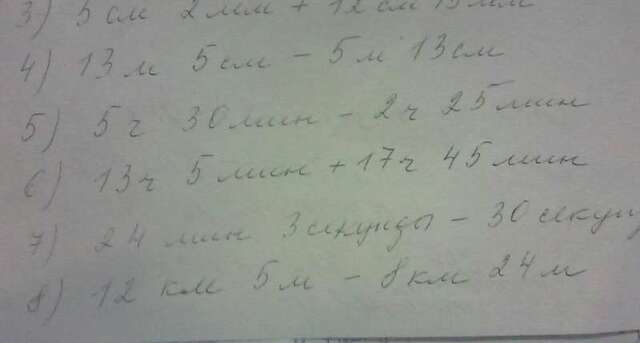 3) 5 см 2 мм + 12 см 15 мм
4) 13 м 5 см - 5 м 13 см
5) 5 ч 30 мин - 2 ч 25 мин
6) 13 ч 5 мин + 17 ч 45 мин
7) 24 мин 3 секунды - 30 секун
8) 12 км 5 м - 8 км 24 м